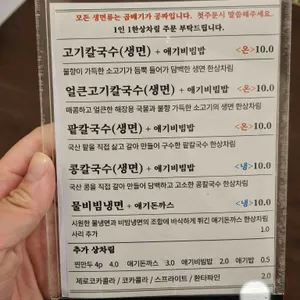 모든 생면류는 곱배기가 공짜입니다. 첫주문시 말씀해주세요.
1인 1한상차림 주문 부탁드립니다.
고기칼국수(생면) + 애기비빔밥 <온>10.0
불향이 가득한 소고기가 듬뿍 들어가 담백한 생면 한상차림
얼큰고기칼국수(생면) + 애기비빔밥 <온>10.0
매콤하고 얼큰한 해장용 국물과 불향 가득한 소고기의 생면 한상차림
팥칼국수(생면) + 애기비빔밥 <온>10.0
국산 팥을 직접 삶고 갈아 만들어 구수한 팥칼국수 한상차림
콩칼국수(생면) + 애기비빔밥 <냉>10.0
국산 콩을 직접 갈아 만들어 담백하고 고소한 콩칼국수 한상차림
물비빔냉면 + 애기돈까스 <냉>10.0
시원한 물냉면과 비빔냉면의 조합에 바삭하게 튀긴 애기돈까스 한상차림
사리 추가 1.0
추가 상차림
찐만두 4p 4.0 애기돈까스 3.0 애기비빔밥 2.0 애기밥 0.5
제로코카콜라 / 코카콜라 / 스프라이트 / 환타파인 2.0